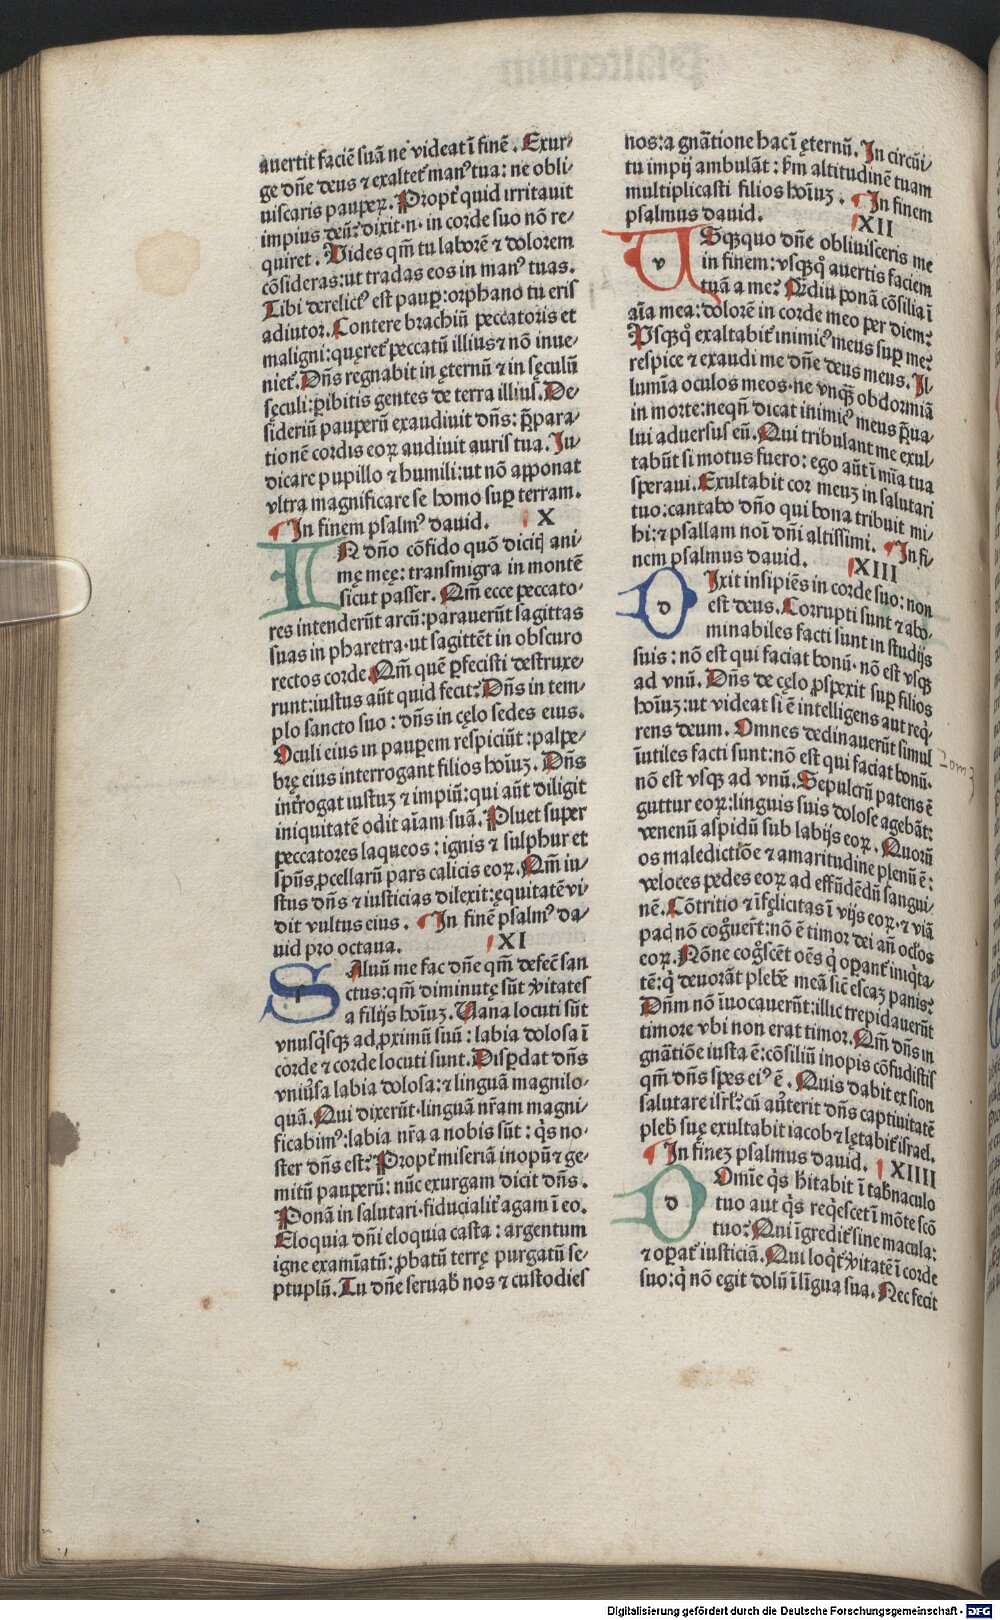 auertit faciē suā ne videat ī finē. Exur-
ge dn̄e deus ⁊ exaltet᷑ manꝰ tua: ne obli-
uiscaris pauperꝝ. Propt᷑ quid irritauit
impius deū: dixit.n. in corde suo nō re-
quiret. Vides qm̄ tu laborē ⁊ dolorem
cōsideras: ut tradas eos in manꝰ tuas.
Tibi derelictꝰ est paup̄: orphano tu eris
adiutor. Contere brachiū peccatoris et
maligni: quęret᷑ peccatū illius ⁊ nō inue-
niet᷑. Dn̄s regnabit in ęternū ⁊ in sęculū
sęculi: ꝑibitis gentes de terra illius. De-
sideriū pauperū exaudiuit dn̄s: p̄para-
tionē cordis eoꝝ audiuit auris tua. Iu-
dicare pupillo ⁊ humili: ut nō apponat
vltra magnificare se homo suꝑ terram.
In finem psalmꝰ dauid. X
IN dn̄o cōfido quō dicitꝭ ani-
mę meę: transmigra in montē
sicut passer. Qm̄ ecce peccato-
res intenderūt arcū: parauerūt sagittas
suas in pharetra. ut sagittēt in obscuro
rectos corde. Qm̄ quē ꝑfecisti destruxe-
runt: iustus aūt quid fecit? Dn̄s in tem-
plo sancto suo: dn̄s in cęlo sedes eius.
Oculi eius in pauꝑem respiciūt: palpe-
brę eius interrogant filios hoīuꝫ. Dn̄s
int᷑rogat iustuꝫ ⁊ impiū: qui aūt diligit
iniquitatē odit aīam suā. Pluet super
peccatores laqueos: ignis ⁊ sulphur et
spūs ꝓcellarū pars calicis eoꝝ. Qm̄ iu-
stus dn̄s ⁊ iusticias dilexit: ęquitatē vi-
dit vultus eius. In finē psalmꝰ da-
uid pro octaua. XI
SAluū me fac dn̄e qm̄ defec̄ san
ctus: qm̄ diminutę sūt v᷑itates
a filijs hoīuꝫ. Vana locuti sūt
vnusq̇sqꝫ ad ꝓximū suū: labia dolosa ī
corde ⁊ corde locuti sunt. Disꝑdat dn̄s
vniu᷑sa labia dolosa: ⁊ linguā magnilo-
quā. Qui dixerūt. linguā nr̄am magni-
ficabimꝰ: labia nr̄a a nobis sūt: q̇s no-
ster dn̄s est? Propt᷑ miseriā inopū ⁊ ge-
mitū pauperū: nūc exurgam dicit dn̄s.
Ponā in salutari. fiducialit᷑ agam ī eo.
Eloquia dn̄i eloquia casta: argentum
igne examīatū: ꝓbatū terrę purgatū se-
ptuplū. Tu dn̄e seruab̄ nos ⁊ custodies
nos: a gn̄atione hac ī ęternū. In circūi-
tu impij ambulāt: ẜm altitudinē tuam
multiplicasti filios hoīuꝫ. In finem
psalmus dauid. XII
v
VSqꝫquo dn̄e obliuisceris me
in finem: vsqꝫq̊ auertis faciem
tuā a me? Q̄diu ponā cōsilia ī
aīa mea: dolorē in corde meo per diem?
Vsqꝫq̊ exaltabit᷑ inimicꝰ meus suꝑ me?
respice ⁊ exaudi me dn̄e deus meus. Il-
lumīa oculos meos. ne vnqꝫ̄ obdormiā
in morte: neqn̄ dicat inimicꝰ meus p̄ua-
lui aduersus eū. Qui tribulant me exul-
tabūt si motus fuero: ego aūt ī mīa tua
speraui. Exultabit cor meuꝫ in salutari
tuo: cantabo dn̄o qui bona tribuit mi-
hi: ⁊ psallam noī dn̄i altissimi. In fi-
nem psalmus dauid. XIII
d
DIxit insipiēs in corde suo: non
est deus. Corrupti sunt ⁊ abo-
minabiles facti sunt in studijs
suis: nō est qui faciat bonū. nō est vsqꝫ
ad vnū. Dn̄s de cęlo ꝓspexit suꝑ filios
hoīuꝫ: ut videat si ē intelligens aut req̇-
rens deum. Omnes declinauerūt simul
īutiles facti sunt: nō est qui faciat bonū.
nō est vsqꝫ ad vnū. Sepulcrū patens ē
guttur eoꝝ: linguis suis dolose agebāt:
venenū aspidū sub labijs eoꝝ. Quorū
os maledictiōe ⁊ amaritudine plenū ē:
veloces pedes eoꝝ ad effūdēdū sangui-
nē. Cōtritio ⁊ īfęlicitas ī vijs eoꝝ. ⁊ viā
pacꝭ nō cog̊uer̄t: nō ē timor dei an̄ oc̄los
eoꝝ. Nōne cog̊scēt oēs q̇ oꝑant᷑ iniq̇ta-
tē: q̇ deuorāt plebē meā sic̄ escaꝫ panis?
Dn̄m nō īuocauerūt: illic trepidauerūt
timore vbi non erat timor. Qm̄ dn̄s in
gn̄atiōe iusta ē: cōsiliū inopis cōfudistis
qm̄ dn̄s spes eiꝰ ē. Quis dabit ex sion
salutare isrl̄: cū au᷑terit dn̄s captiuitatē
pleb̄ suę exultabit iacob ⁊ lętabit᷑ israel.
In fineꝫ psalmus dauid. XIIII
d
DOmīe q̇s h̄itabit ī tab᷑naculo
tuo aut q̇s req̇escet ī mōte scō
tuo? Qui īgredit᷑ sine macula:
⁊ oꝑat᷑ iusticiā. Qui loq̇t᷑ v᷑itatē ī corde
suo: q̇ nō egit dolū ī līgua sua. Nec fecit
Digitalisierung gefördert durch die Deutsche Forschungsgemeinschaft - DFG